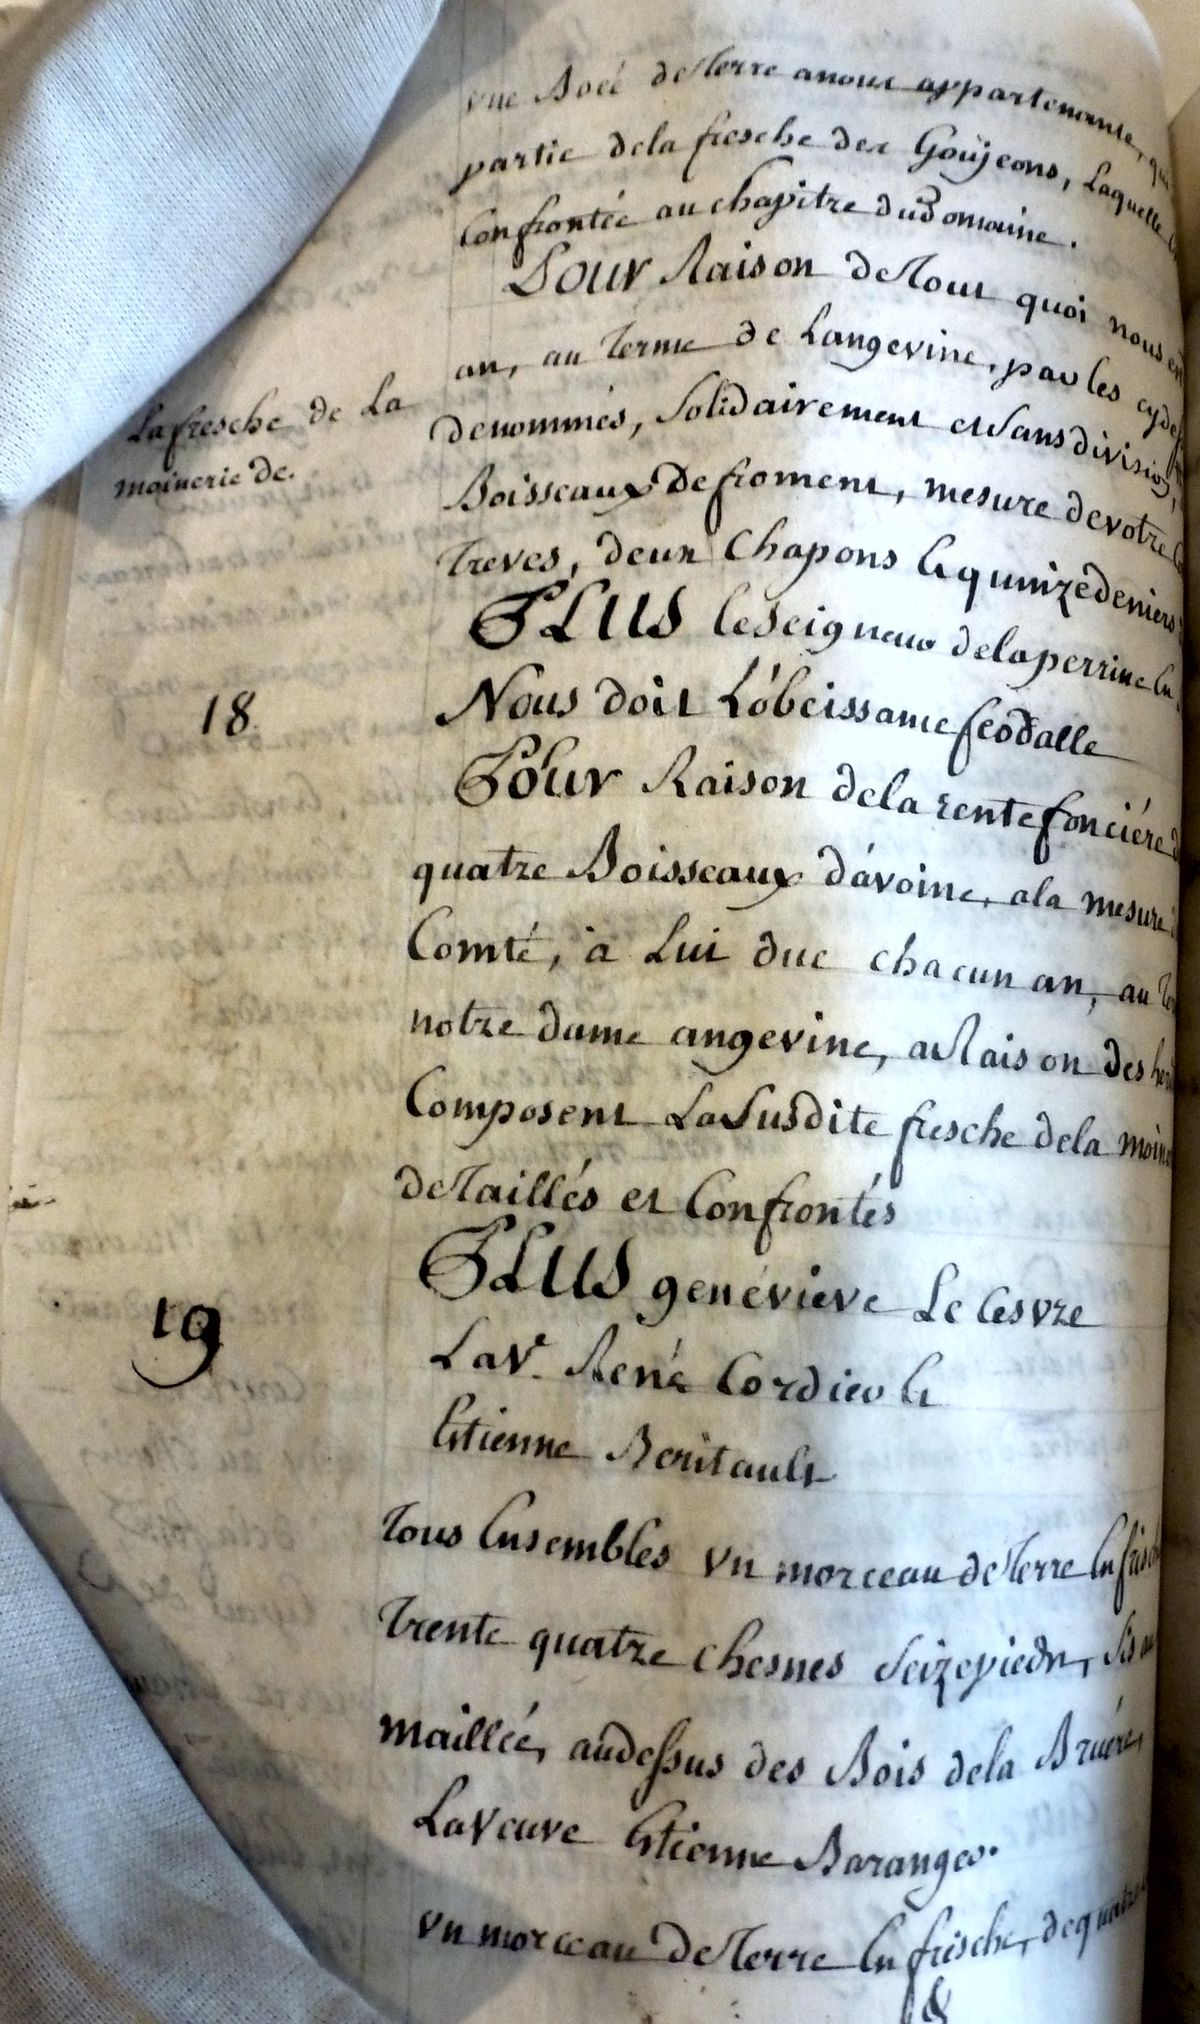 vne Boëe de Terre anous appartenante, qui
partie dela fresche des Goüjeons, Laquelle
Confrontée au chapitre du Domaine.
Pour Raison de Tout quoi nous
an, au Terme de Langevine, par les cyde
dénommés, Solidairement et Sans division,
Boisseaux de froment, mesure de votre
Treves, deux Chapons et quinze deniers
La fresche de La
moinerie de.
PLUS le Seigneur de la perrine
18
Nous doit L'obeissance feodalle
Pour Raison dela rente foncière
quatre Boisseaux d'avoine, ala mesure
Comté, à Lui due chacun an, au
notre dame angevine, a Raison des
Composent La Susdite fresche dela
deTaillés et Confrontés
PLUS genéviéve Le Cesvre
19
La Ve. René Cordier et
Etienne Beritault
Tous Ensembles vn morceau de Terre En
Trente quatre chesnes Seize pieds, Sis au
maillée, audessus des Bois dela Bruére,
La Veuve Etienne Baranger.
vn morceau de Terre En frische, de quatre
&